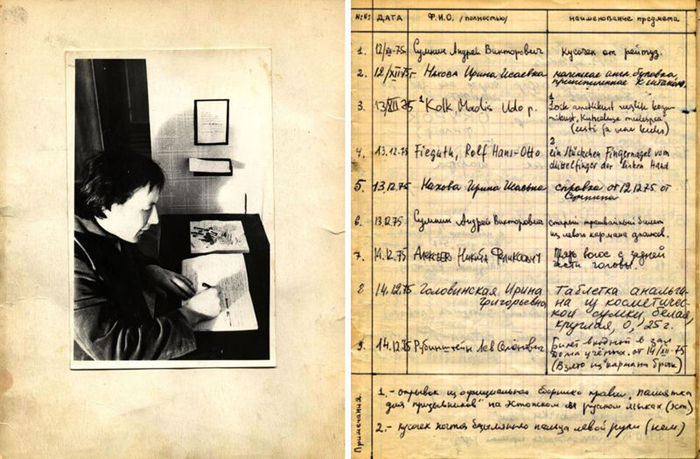 №№ ДАТА Ф.И.О. (полностью) наименование предмета
1. 12/XII-75 Сумнин Андрей Викторович кусочек от рейтуз.
2. 12/XII-75г Нахова Ирина Исаевна булавка,
3. 13/XII-75 ¹Kolk Madis Udo p. 1.
4. 13.12.75 Fieguth, Rolf Hans-Otto 2. ein Stückchen Fingernagel vom
Mittelfinger der linken Hand
5. 13.12.75 Нахова Ирина Исаевна справка от 12.12.75 от
Сумнина
6. 13.12.75 Сумнин Андрей Викторович старый трамвайный билет
из левого кармана
7. 14.12.75 Алексеев Никита Феликсович Прядь волос с задней
части головы
8 14.12.75 Головинская Ирина Таблетка анальги-
Григорьевна на из косметичес-
кой сумки, белая,
круглая, 0,25 г.
9. 14.12.75 Рубинштейн Лев Семёнович Билет входной в зал
Дома учёных. от 14/XII-75
(Взято из кармана брюк)
Примечания
1.- отрывок из официального сборника правил, "памятка
для призывников" на эстонском и русском языках (эст)
2.- кусочек ногтя среднего пальца левой руки (нем.)